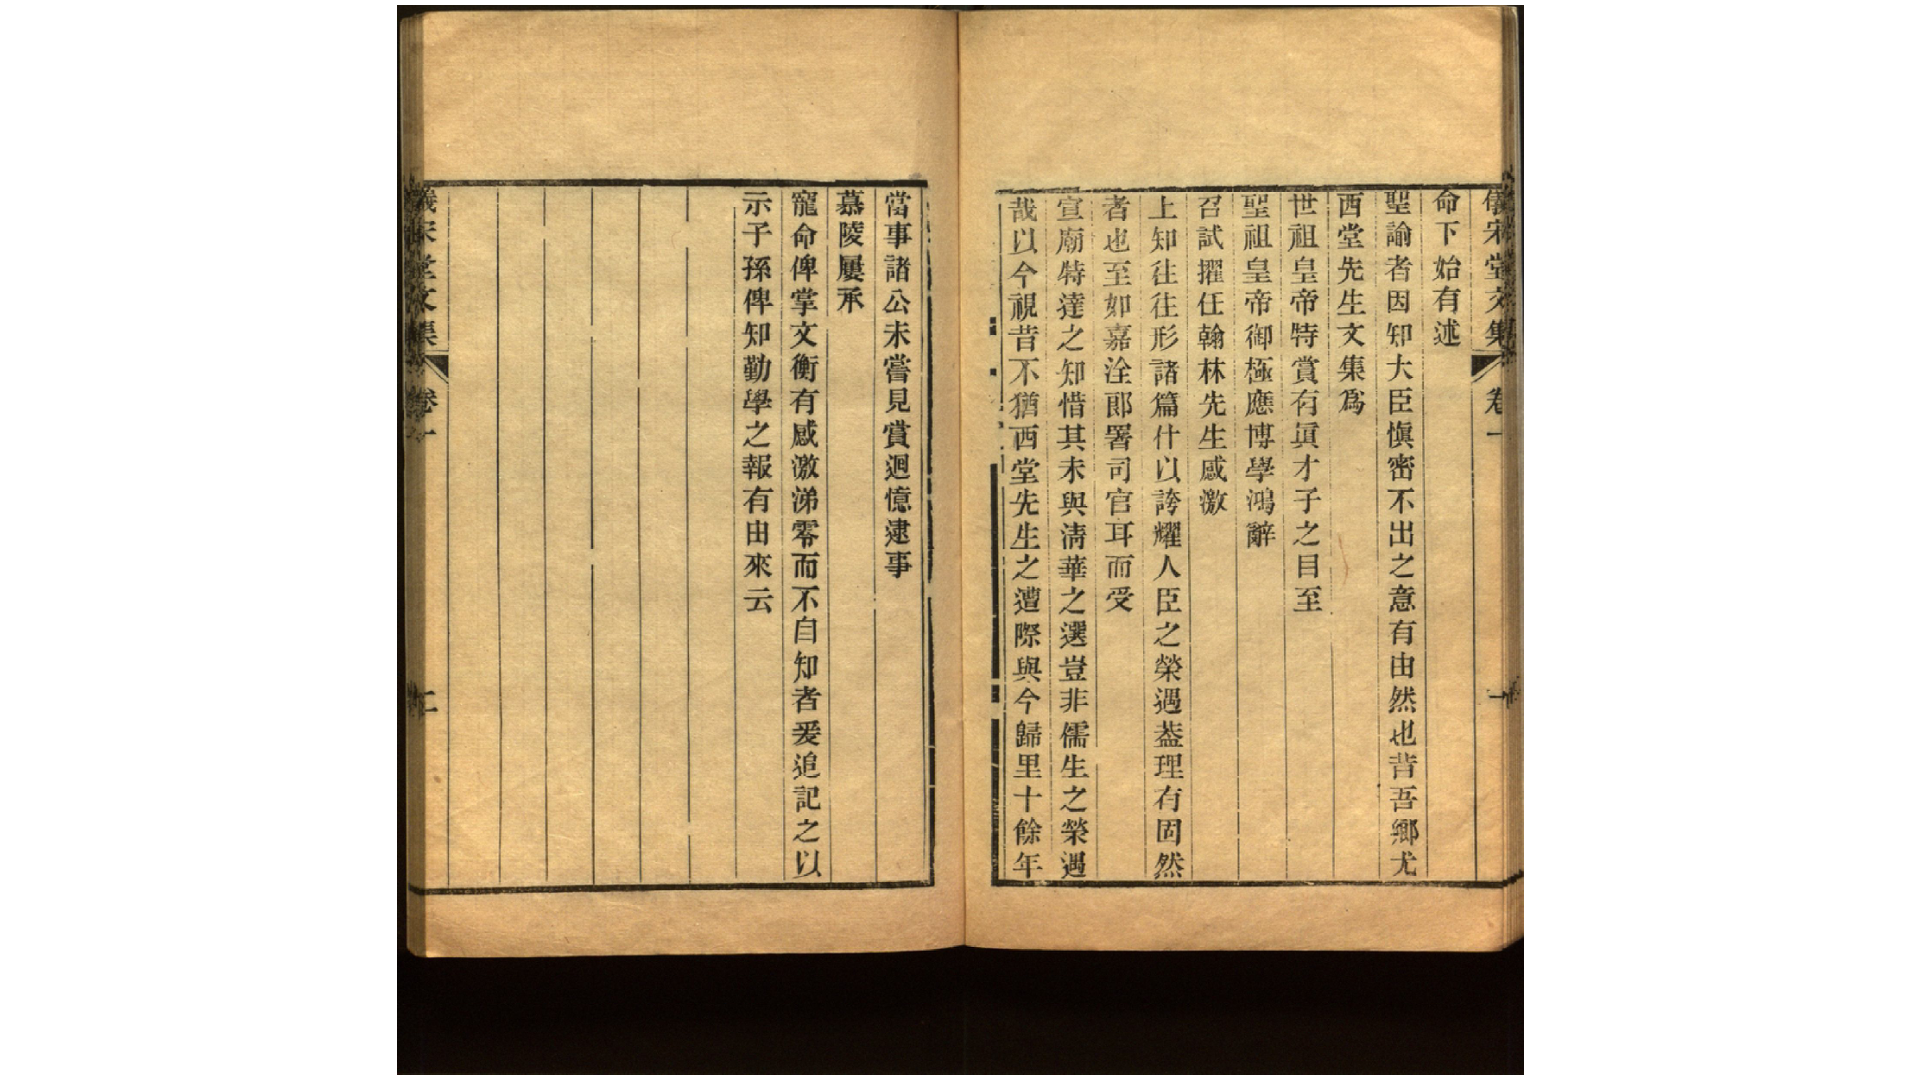 儀宋堂文集 卷一 一
命下始有述
聖諭者因知大臣慎密不出之意有由然也昔吾鄉尤
西堂先生文集爲
世祖皇帝特賞有眞才子之目至
聖祖皇帝御極應博學鴻辭
召試擢任翰林先生感激
上知往往形諸篇什以誇耀人臣之榮遇葢理有固然
者也至如嘉淦郎署司官耳而受
宣廟特達之知惜其未與清華之選豈非儒生之榮遇
哉以今視昔不猶西堂先生之遭際與今歸里十餘年
當事諸公未嘗見賞迴憶逮事
慕陵屢承
寵命俾掌文衡有感激涕零而不自知者爰追記之以
示子孫俾知勤學之報有由來云
儀宋堂文集 卷一 二